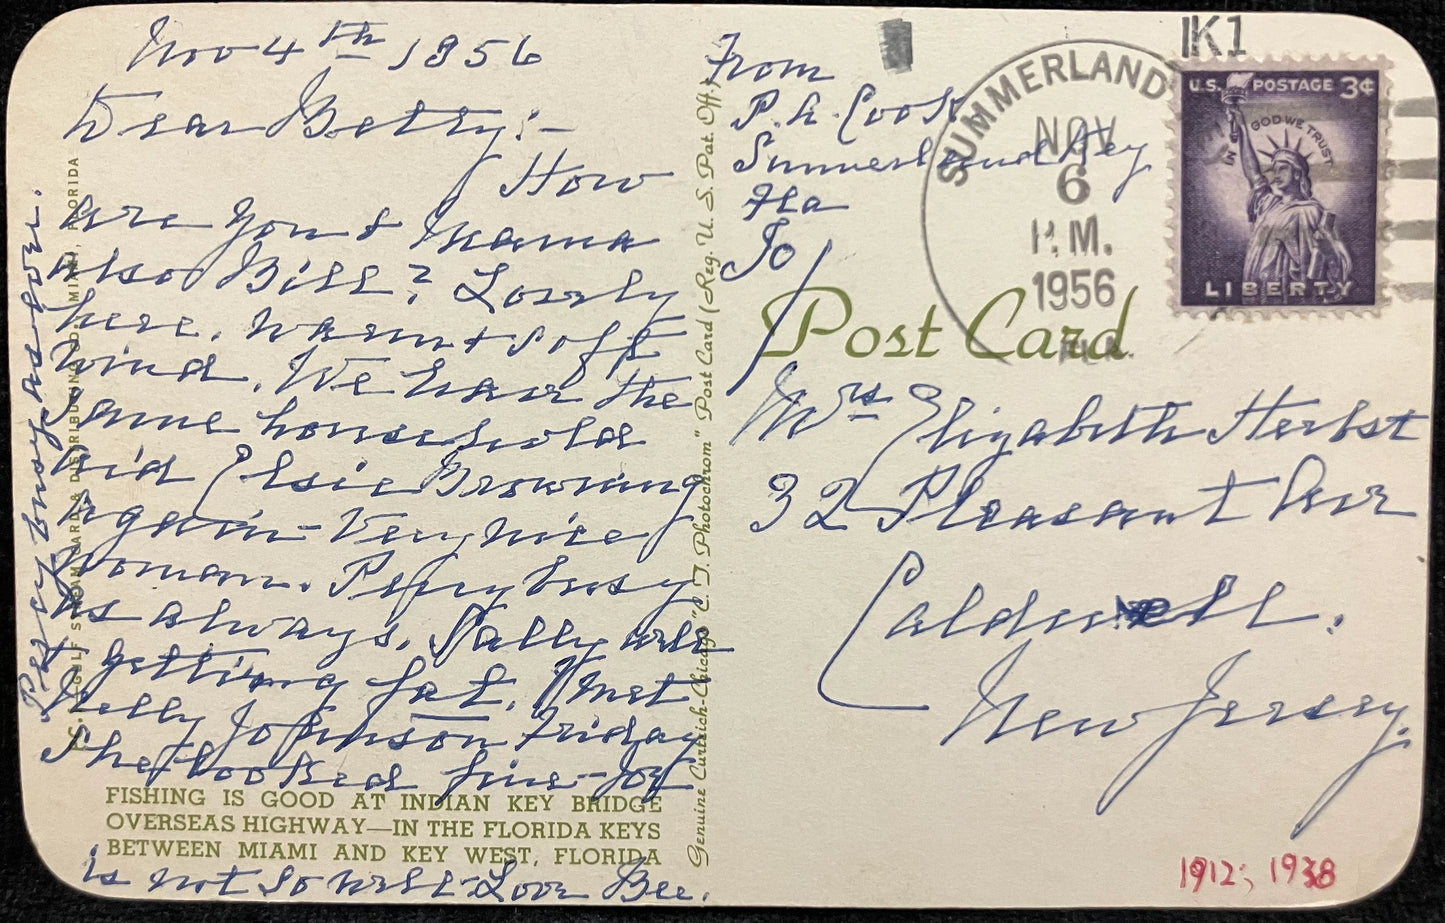 Nov 4th 1956
Dear Betty:-
How
are you & Mama
also Bill? Lovely
here. Warm & soft
wind. We have the
same household
aid Elsie Browning
again - Very nice
woman. Perry busy
as always. Sally well
& getting fat. I met
Nelly Johnson Friday
She looked fine - Joy
is not so well - Love Bee.
Percy busy as ever.
FISHING IS GOOD AT INDIAN KEY BRIDGE
OVERSEAS HIGHWAY—IN THE FLORIDA KEYS
BETWEEN MIAMI AND KEY WEST, FLORIDA
GULF STREAM CARD & DISTRIBUTING CO., MIAMI, FLORIDA
Genuine Curteich-Chicago "C. T. Photochrom" Post Card (Reg. U. S. Pat. Off.)
From
P. H. Cook
Summerland Key
Fla
To
Post Card
SUMMERLAND
NOV
6
P.M.
1956
FLA.
1K1
U.S. POSTAGE 3¢
IN GOD WE TRUST
LIBERTY
Mrs Elizabeth Herbst
32 Pleasant Ave
Caldwell.
New Jersey.
1912; 1938